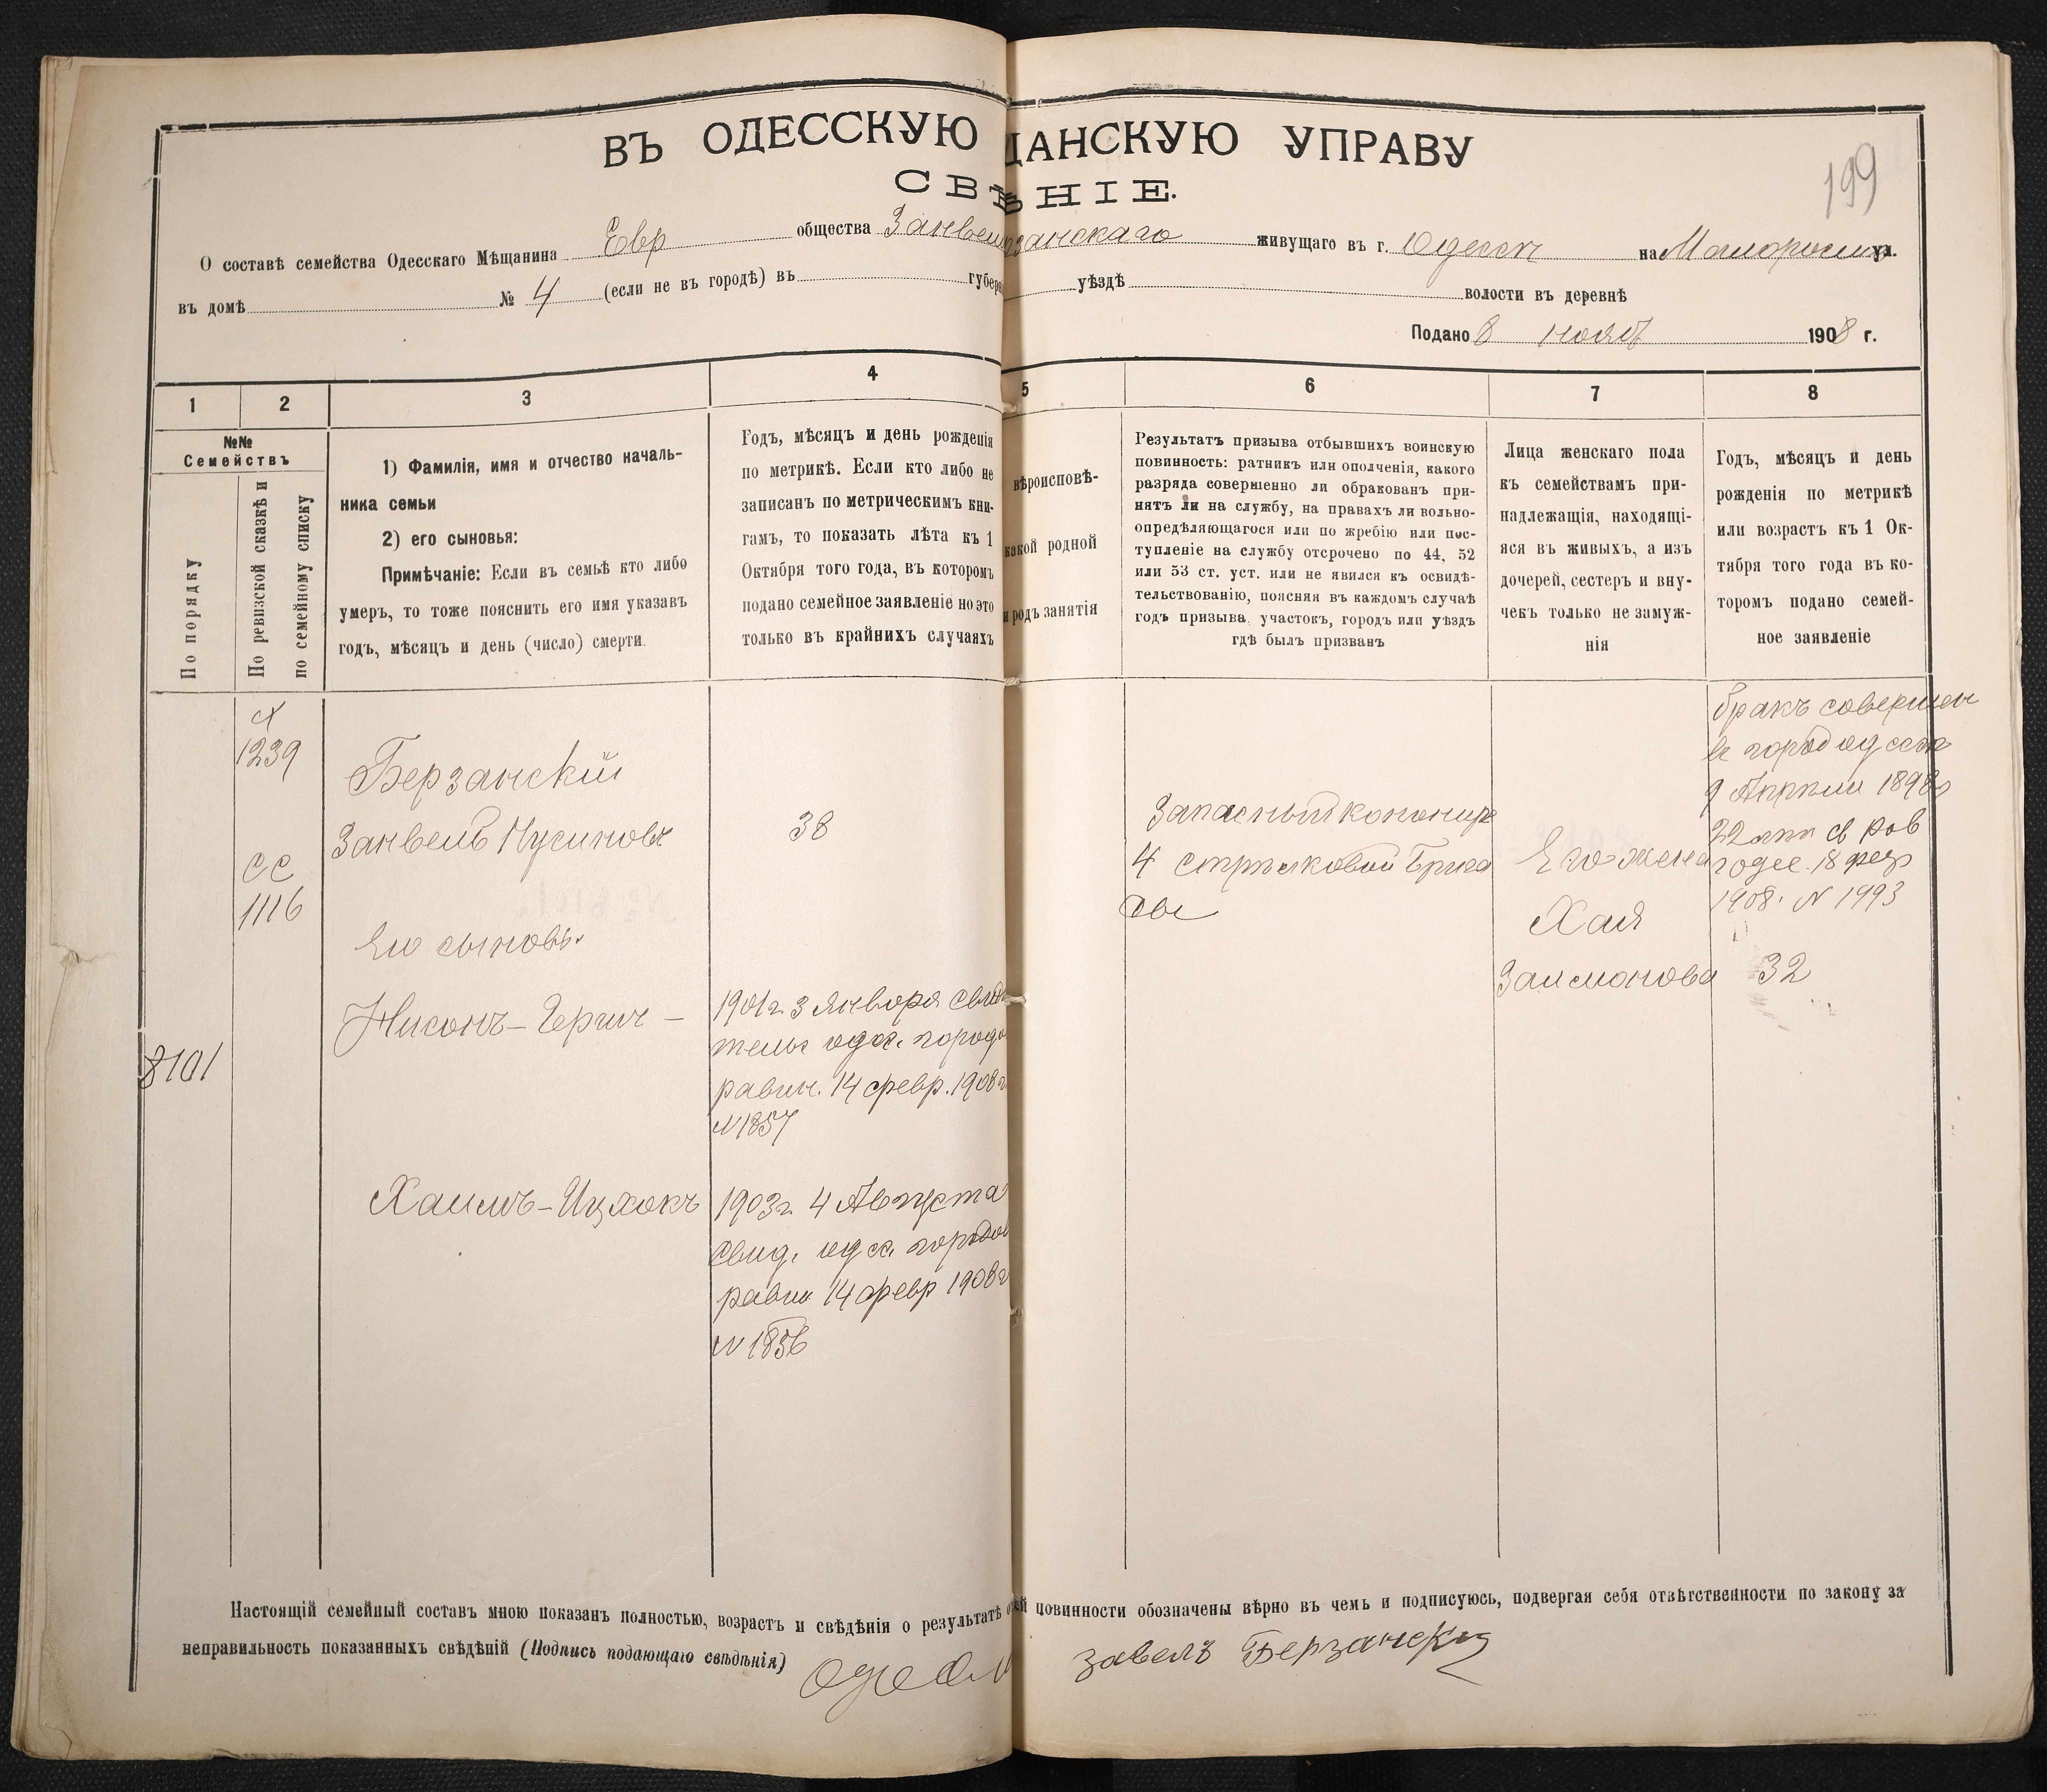 ВЪ ОДЕССКУЮ ЩАНСКУЮ УПРАВУ
199
О составѣ семейства Одесскаго Мѣщанина Евр общества живущаго въ г. Одессѣ на ул.
въ домѣ № 4 (если не въ городѣ) въ губерн уѣздѣ волости въ деревнѣ
Подано 8 нояб 1908 г.
1 2 3 4 5 6 7 8
№№
Семействъ
По порядку
По ревизской сказкѣ и
по семейному списку
1) Фамилія, имя и отчество началь-
ника семьи
2) его сыновья:
Примѣчаніе: Если въ семьѣ кто либо
умеръ, то тоже пояснить его имя указавъ
годъ, мѣсяцъ и день (число) смерти.
Годъ, мѣсяцъ и день рожденія
по метрикѣ. Если кто либо не
записанъ по метрическимъ кни-
гамъ, то показать лѣта къ 1
Октября того года, въ которомъ
подано семейное заявленіе но это
только въ крайнихъ случаяхъ
вѣроисповѣ-
какой родной
и родъ занятія
Результатъ призыва отбывшихъ воинскую
повинность: ратникъ или ополченія, какого
разряда совершенно ли обракованъ при-
нятъ ли на службу, на правахъ ли вольно-
опредѣляющагося или по жребію или пос-
тупленіе на службу отсрочено по 44, 52
или 53 ст. уст. или не явился къ освидѣ-
тельствованію, поясняя въ каждомъ случаѣ
годъ призыва, участокъ, городъ или уѣздъ
гдѣ былъ призванъ
Лица женскаго пола
къ семействамъ при-
надлежащія, находящі-
яся въ живыхъ, а изъ
дочерей, сестеръ и вну-
чекъ только не замуж-
нія
Годъ, мѣсяцъ и день
рожденія по метрикѣ
или возрастъ къ 1 Ок-
тября того года въ ко-
торомъ подано семей-
ное заявленіе
1239
СС
1116
8101
Берзанскій
Занвель Нусиновъ
Его сыновья
Нисонъ-Гершъ-
Хаимъ-Ицхокъ
38
1901 г. 3 Января Свидѣ
тельс одес. городо
равин. 14 февр. 1908 г
N 1857
1903 г. 4 Августа
Свид. одес. городов
равин 14 февр 1908 г
N 1856
Запасный канониръ
4 Стрѣлковой Брига
ды
Его жена
Хая
Займонова
бракъ совершен
в город одессѣ
9 Апрѣля 1898 г
1908. N 1993
32
Настоящій семейный составъ мною показанъ полностью, возрастъ и свѣдѣнія о результатѣ о ей повинности обозначены вѣрно въ чемъ и подписуюсь, подвергая себя отвѣтственности по закону за
неправильность показанныхъ свѣдѣній (Подпись подающаго свѣдѣнія)
завелъ Берзанскій